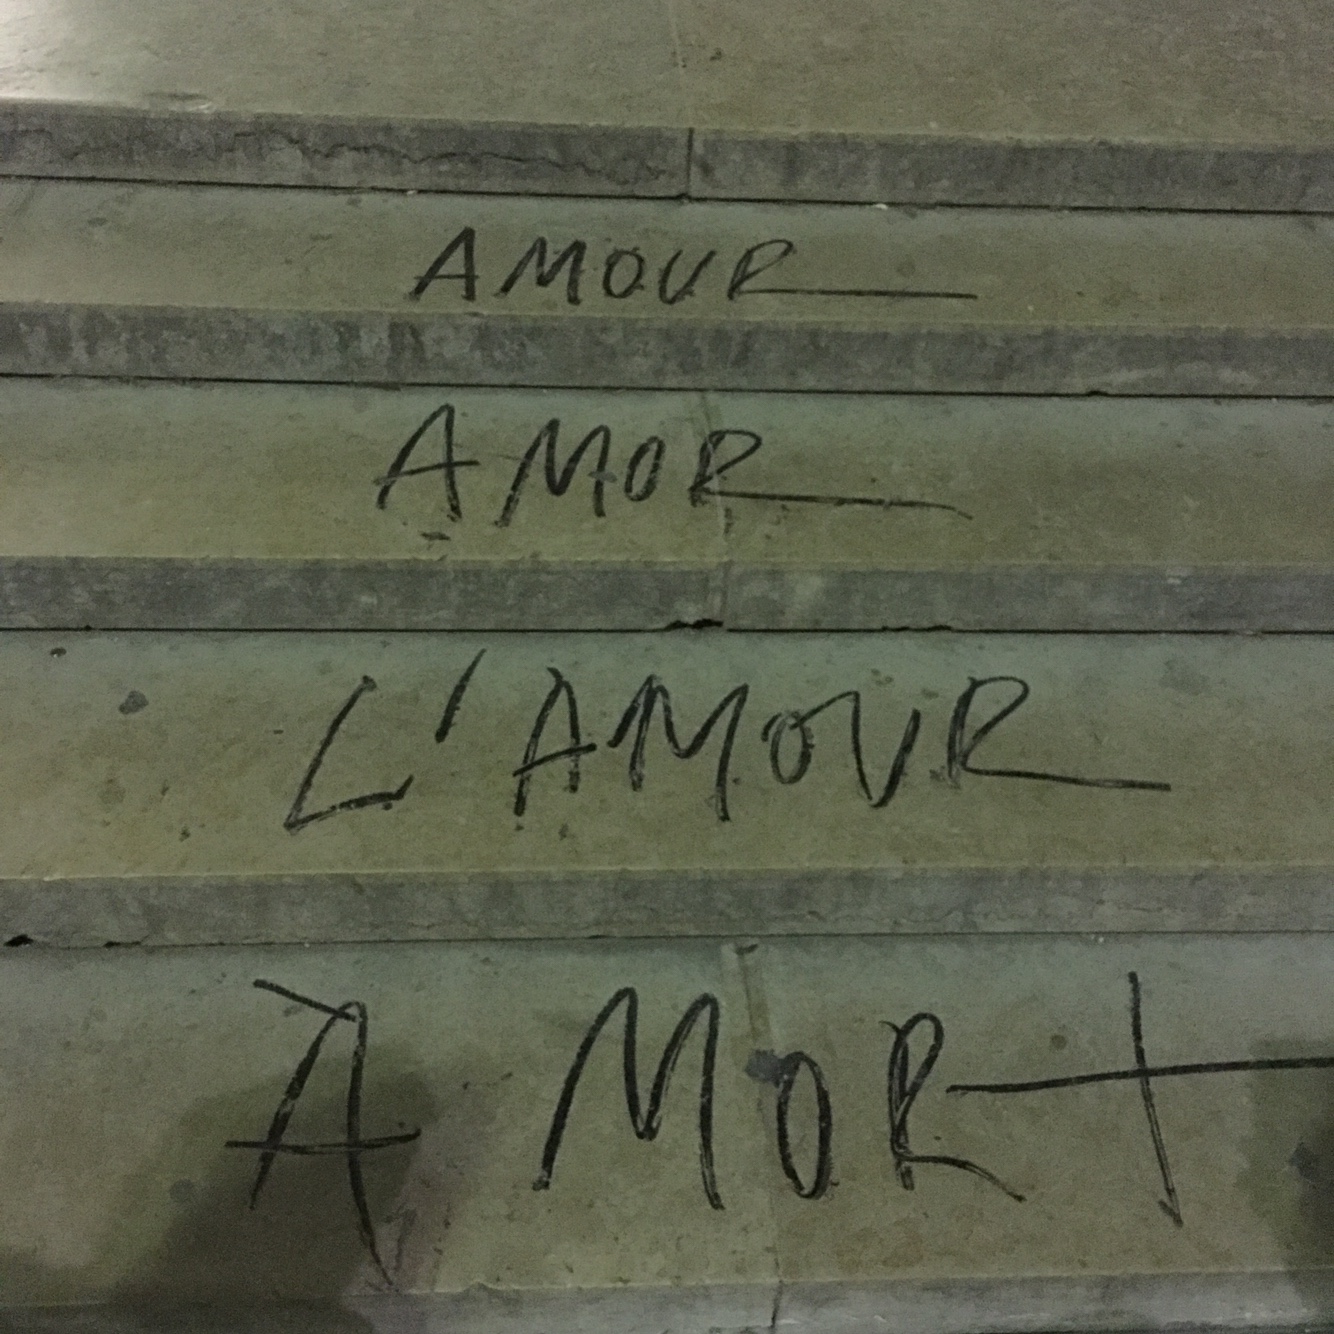 AMOUR
AMOR
L'AMOUR
À MORt